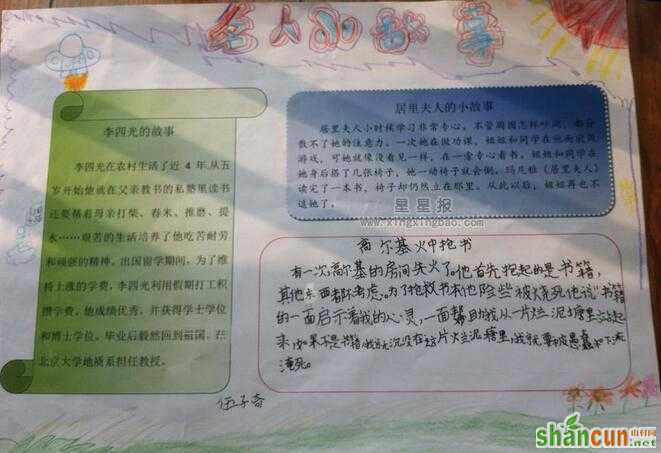 名人小故事
李四光的故事
李四光在农村生活了近 4 年,从五
岁开始他就在父亲教书的私塾里读书
还要帮着母亲打柴、舂米、推磨、提
水……艰苦的生活培养了他吃苦耐劳
和顽强的精神。出国留学期间,为了维
持上涨的学费,李四光利用假期打工积
攒学费。他成绩优秀,并获得学士学位
和博士学位。毕业后毅然回到祖国,在
北京大学地质系担任教授。
居里夫人的小故事
居里夫人小时候学习非常专心。不管周围怎样吵闹,都分
散不了她的注意力。一次她在做功课,姐姐和同学在他面前做
游戏,可她就像没看见一样,在一旁专心看书。姐姐和同学在
她身后搭了几张椅子,她一动椅子就会倒。玛尼雅(居里夫人)
读完了一本书,椅子却仍然立在那里。从此以后,姐姐再也不
逗她了。
星星报
www.xingxingbao.com
高尔基火中抢书
有一次,高尔基的房间失火了。他首先抱起的是书籍,
其他东西都不考虑。为了抢救书本他险些被烧死他说"书籍
的一面启示着我的心灵,一面帮助我从一片烂泥塘里
来如果不是书籍,我就沉没在这片烂泥塘里,我就要被愚蠢和下流
淹死。
伍子奇
shancun
山村网
.net